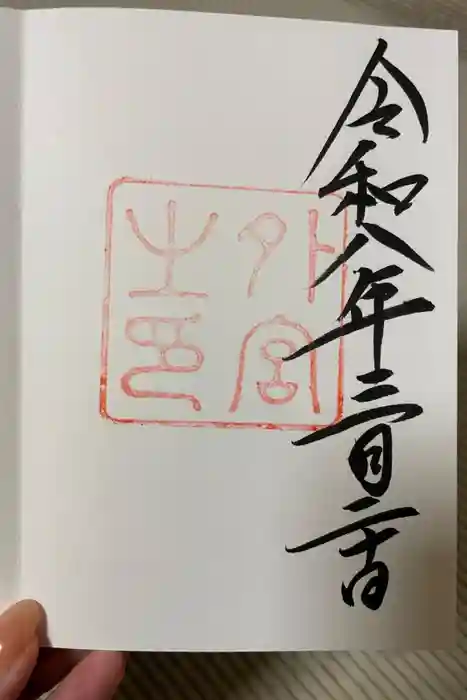 令和八年三月二十日
外宮
之印